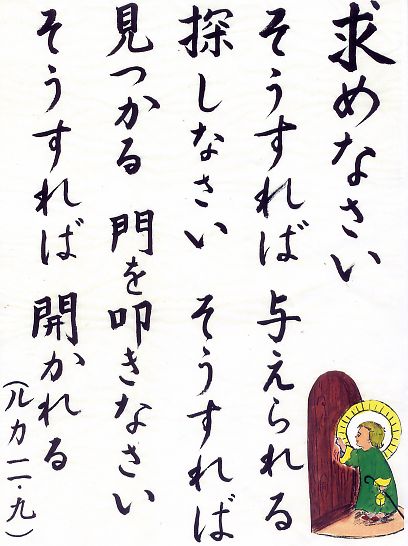 求めなさい
そうすれば 与えられる
探しなさい そうすれば
見つかる 門を叩きなさい
そうすれば 開かれる
(ルカ一一・九)